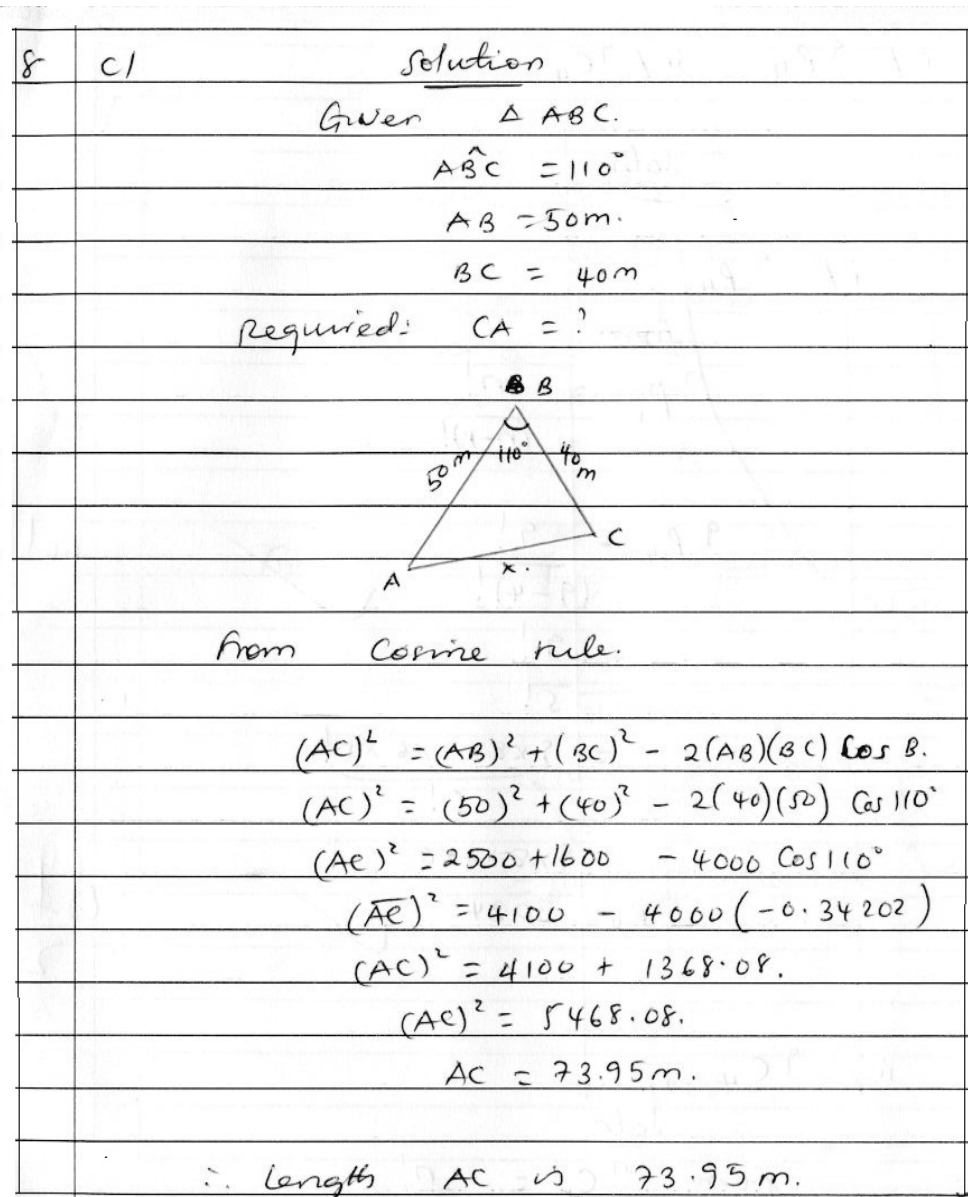 8 c) Solution
Given Δ ABC.
AB̂C = 110°
AB = 50m.
BC = 40m
Required: CA = ?
B
50 m 110° 40 m
C
A x.
From Cosine rule.
(AC)² = (AB)² + (BC)² - 2(AB)(BC) Cos B.
(AC)² = (50)² + (40)² - 2(40)(50) Cos 110°
(AC)² = 2500 + 1600 - 4000 Cos 110°
(A̅C̅)² = 4100 - 4000 (-0.34202)
(AC)² = 4100 + 1368.08.
(AC)² = 5468.08.
AC = 73.95m.
∴ Length AC is 73.95m.